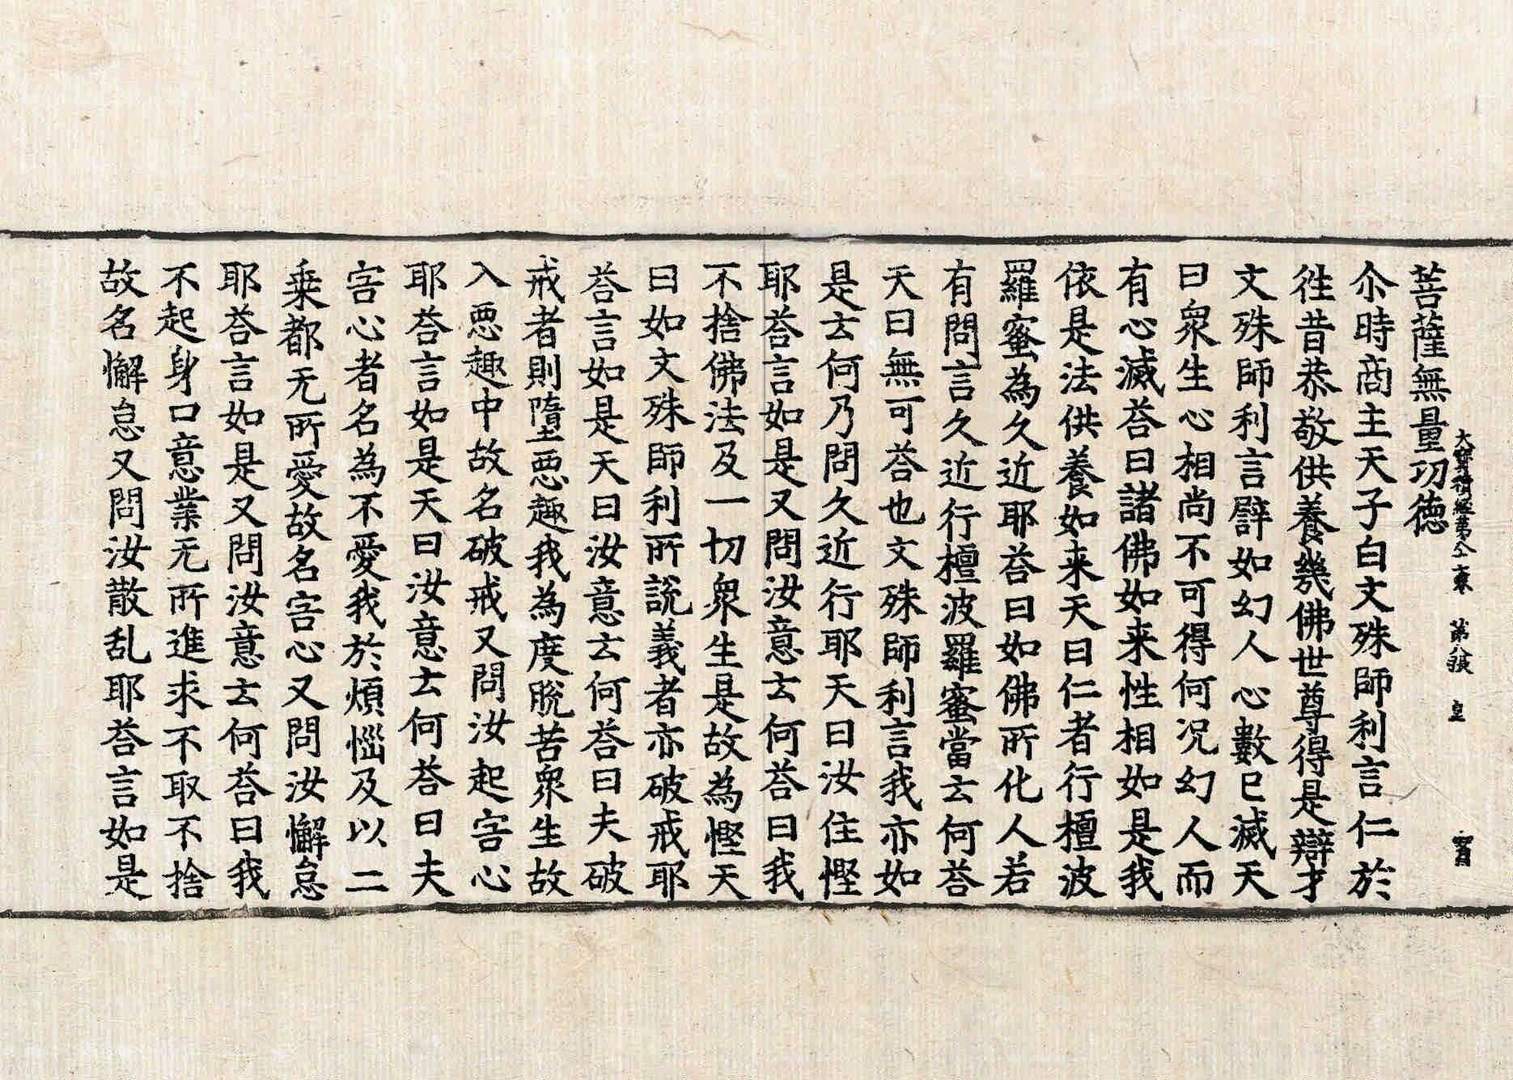 大寳積經第 第八張 皇
菩薩無量功德
尒時商主天子白文殊師利言仁於
徃昔恭敬供養幾佛世尊得是辯才
文殊師利言譬如幻人心數已滅天
曰衆生心相尚不可得何况幻人而
有心滅荅曰諸佛如来性相如是我
依是法供養如来天曰仁者行檀波
羅蜜為久近耶荅曰如佛所化人若
有問言久近行檀波羅蜜當云何荅
天曰無可荅也文殊師利言我亦如
是云何乃問久近行耶天曰汝住慳
耶荅言如是又問汝意云何荅曰我
不捨佛法及一切衆生是故為慳天
曰如文殊師利所説義者亦破戒耶
荅言如是天曰汝意云何荅曰夫破
戒者則墮悪趣我為度脫苦衆生故
入悪趣中故名破戒又問汝起害心
耶荅言如是天曰汝意云何荅曰夫
害心者名為不愛我於煩惱及以二
乗都无所愛故名害心又問汝懈怠
耶荅言如是又問汝意云何荅曰我
不起身口意業无所進求不取不捨
故名懈怠又問汝散乱耶荅言如是